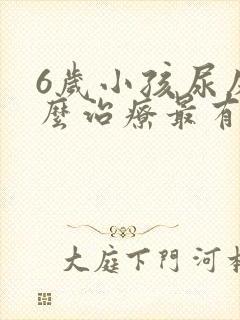 6歲小孩尿
麼治療最有
大庭下門河